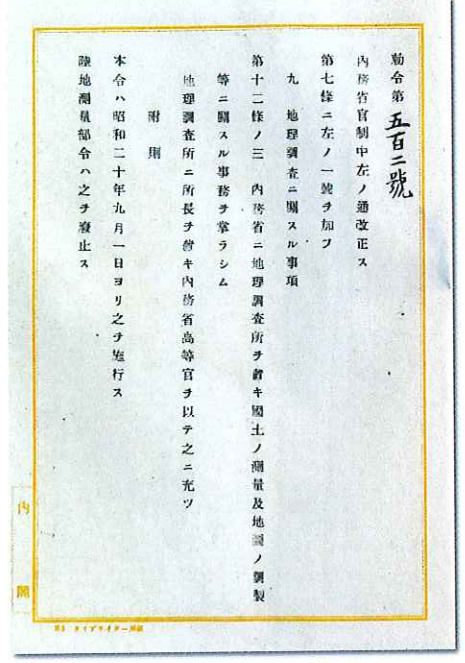 勅令第五百二號
内務省官制中左ノ通改正ス
第七條ニ左ノ一號ヲ加フ
九 地理調査ニ關スル事項
第十二條ノ三 内務省ニ地理調査所ヲ置キ國土ノ測量及地圖ノ調製
等ニ關スル事務ヲ掌ラシム
地理調査所ニ所長ヲ置キ内務省高等官ヲ以テ之ニ充ツ
附則
本令ハ昭和二十年九月一日ヨリ之ヲ施行ス
陸地測量部令ハ之ヲ廢止ス
内閣